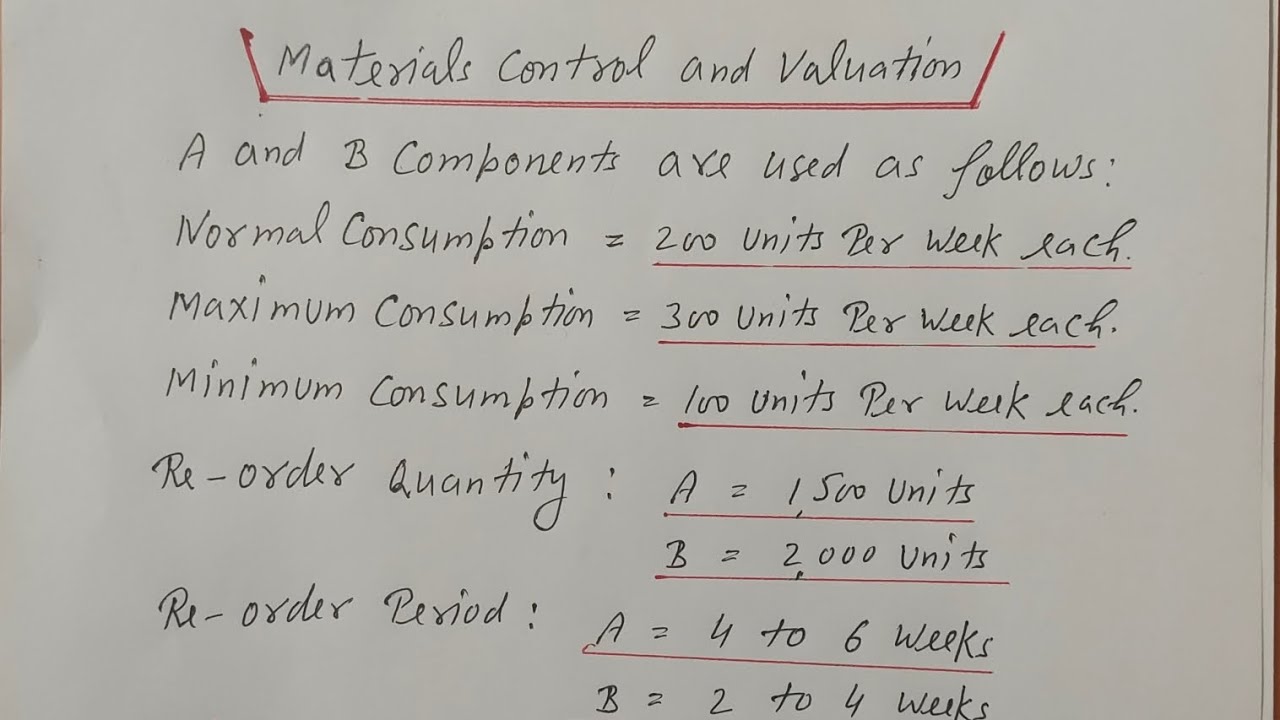 Materials Control and Valuation
A and B Components are used as follows:
Normal Consumption = 200 Units Per Week each.
Maximum Consumption = 300 Units Per Week each.
Minimum Consumption = 100 Units Per Week each.
Re-order Quantity : A = 1,500 Units
B = 2,000 Units
Re-order Period : A = 4 to 6 Weeks
B = 2 to 4 Weeks